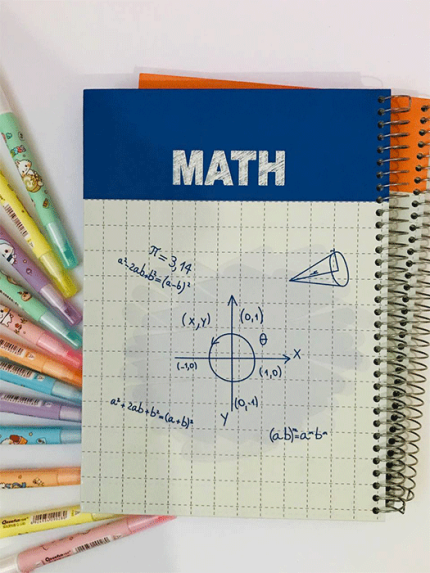 MATH
π = 3,14
a²-2ab+b²=(a-b)²
(X,Y)
(0,1)
θ
X
(-1,0)
(1,0)
(0,-1)
Y
a²+2ab+b²=(a+b)²
(a.b)ⁿ=aⁿ.bⁿ